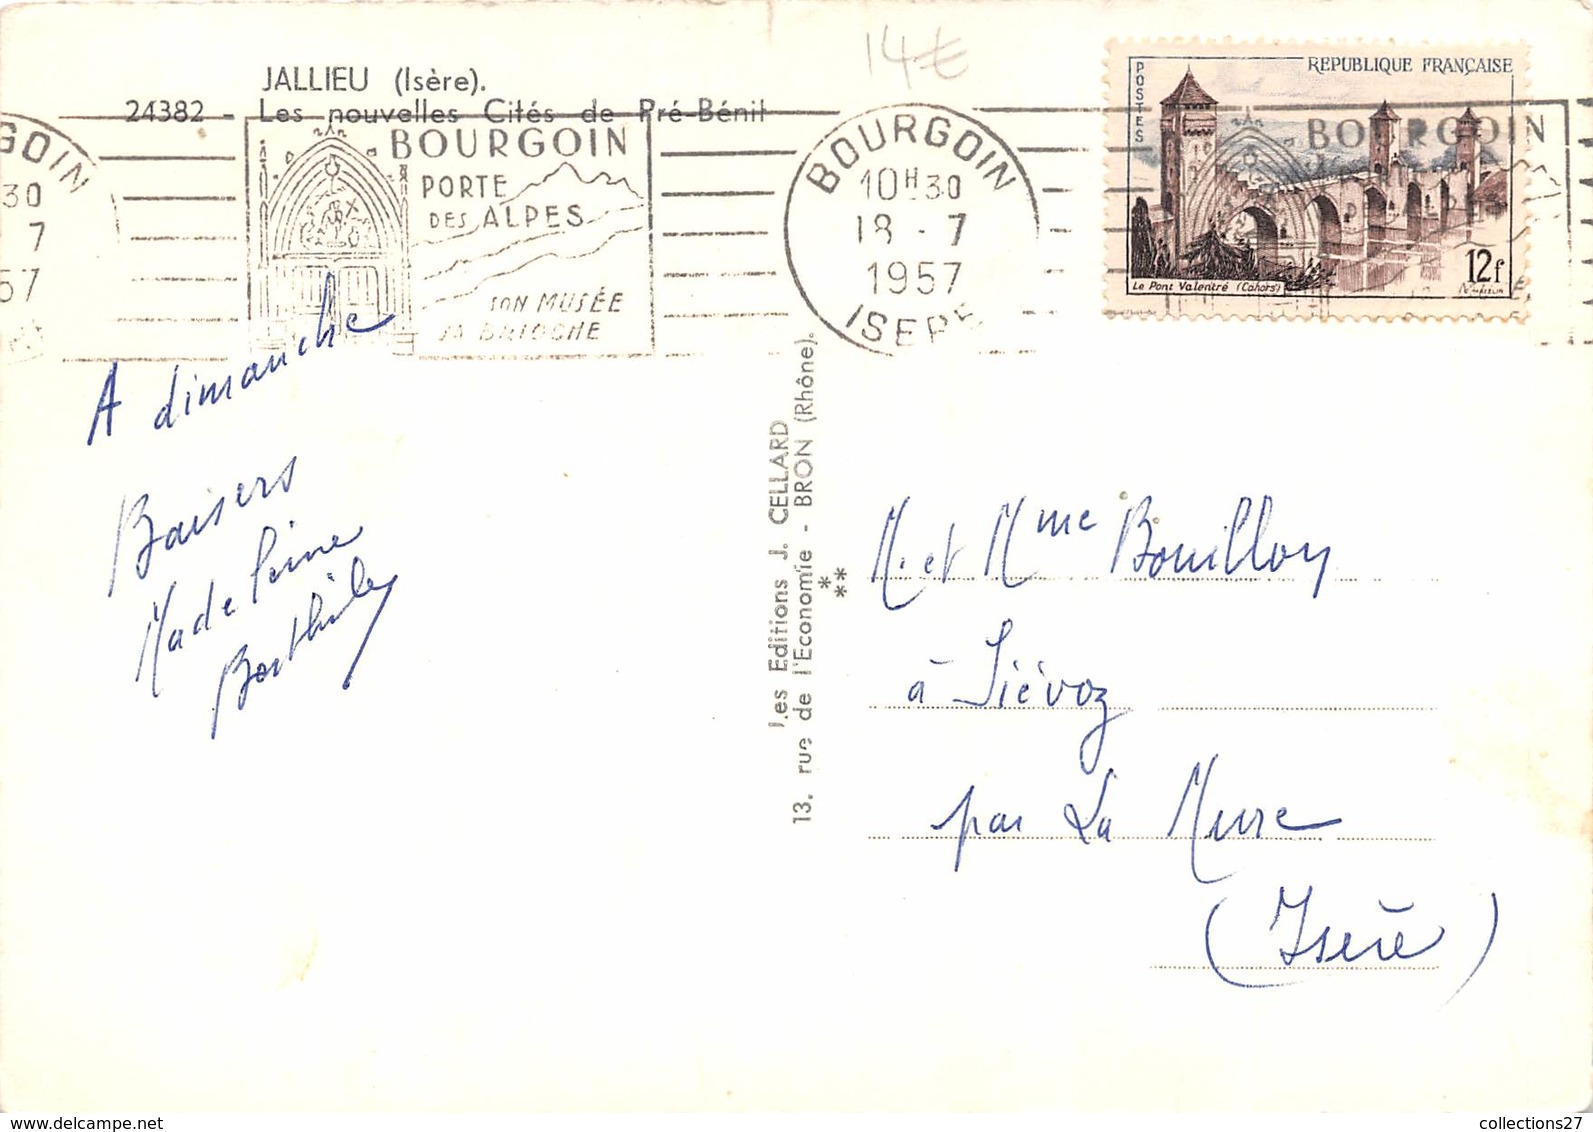 14€
JALLIEU (Isère).
24382 - Les nouvelles Cités de Pré-Bénit
GOIN
30
7
57
BOURGOIN
PORTE
DES ALPES
SON MUSÉE
SA BRIOCHE
BOURGOIN
10H30
18 - 7
1957
ISERE
POSTES
REPUBLIQUE FRANÇAISE
BOURGOIN
Le Pont Valentré (Cahors)
12f
A dimanche
Baisers
Madeleine
Les Editions J. CELLARD
13. rue de l'Economie - BRON (Rhône).
M. et Mme Bouillon
à Siévoz
par La Mure
(Isère)
collections27